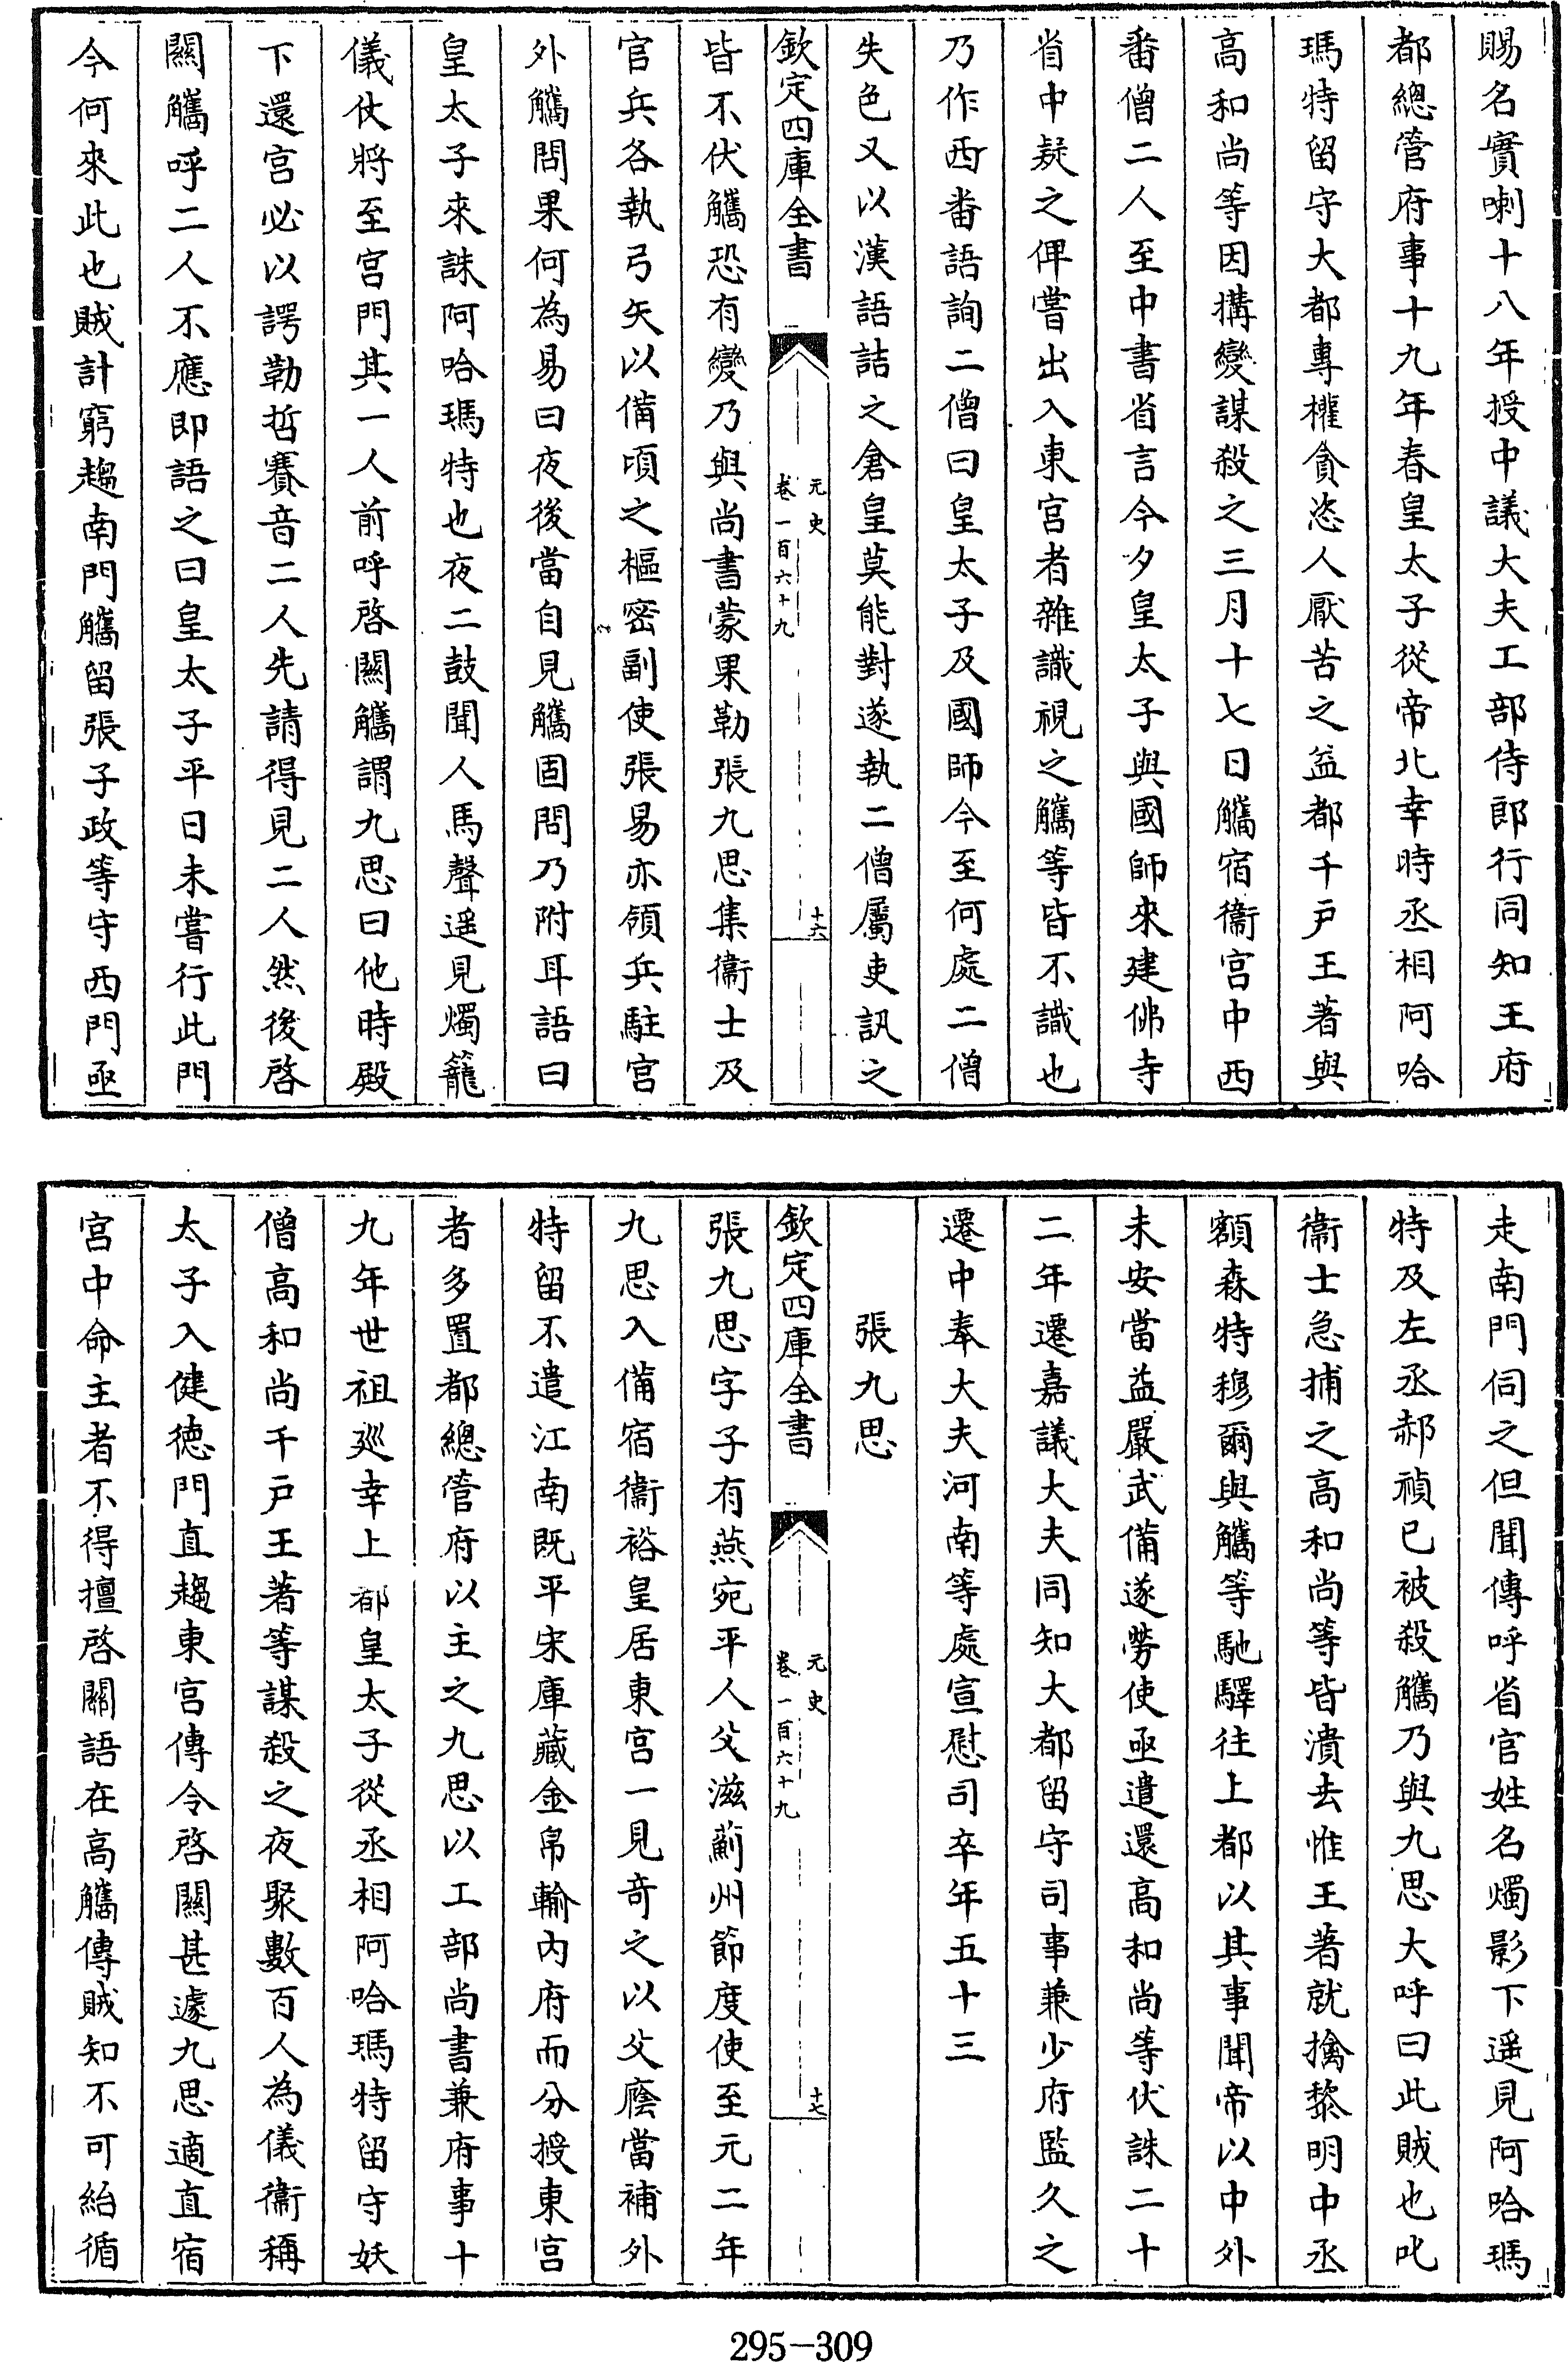 賜名實喇十八年授中議大夫工部侍郎行同知王府
都總管府事十九年春皇太子從帝北幸時丞相阿哈
瑪特留守大都專權貪恣人厭苦之益都千戸王著與
高和尚等因搆變謀殺之三月十七日觿宿衞宫中西
番僧二人至中書省言今夕皇太子與國師來建佛寺
省中疑之俾嘗出入東宮者雜識視之觿等皆不識也
乃作西番語詢二僧曰皇太子及國師今至何處二僧
失色又以漢語詰之倉皇莫能對遂執二僧屬吏訊之
欽定四庫全書
元史
卷一百六十九
十六
皆不伏觿恐有變乃與尚書蒙果勒張九思集衞士及
官兵各執弓矢以備頃之樞密副使張易亦領兵駐宫
外觿問果何為易曰夜後當自見觿固問乃附耳語曰
皇太子來誅阿哈瑪特也夜二鼓聞人馬聲遥見燭籠
儀仗將至宫門其一人前呼啓關觿謂九思曰他時殿
下還宫必以諤勒哲賽音二人先請得見二人然後啓
關觿呼二人不應即語之曰皇太子平日未嘗行此門
今何來此也賊計窮趨南門觿留張子政等守西門亟
走南門伺之但聞傳呼省官姓名燭影下遥見阿哈瑪
特及左丞郝禎已被殺觿乃與九思大呼曰此賊也叱
衞士急捕之高和尚等皆潰去惟王著就擒黎明中丞
額森特穆爾與觿等馳驛往上都以其事聞帝以中外
未安當益嚴武備遂勞使亟遣還高和尚等伏誅二十
二年遷嘉議大夫同知大都留守司事兼少府監久之
遷中奉大夫河南等處宣慰司卒年五十三
張九思
欽定四庫全書
元史
卷一百六十九
十七
張九思字子有燕宛平人父滋薊州節度使至元二年
九思入備宿衞裕皇居東宫一見奇之以父廕當補外
特留不遣江南既平宋庫藏金帛輸內府而分授東宫
者多置都總管府以主之九思以工部尚書兼府事十
九年世祖廵幸上都皇太子從丞相阿哈瑪特留守妖
僧高和尚千戸王著等謀殺之夜聚數百人為儀衞稱
太子入健德門直趨東宫傳令啓關甚遽九思適直宿
宫中命主者不得擅啓關語在高觿傳賊知不可紿循
295-309